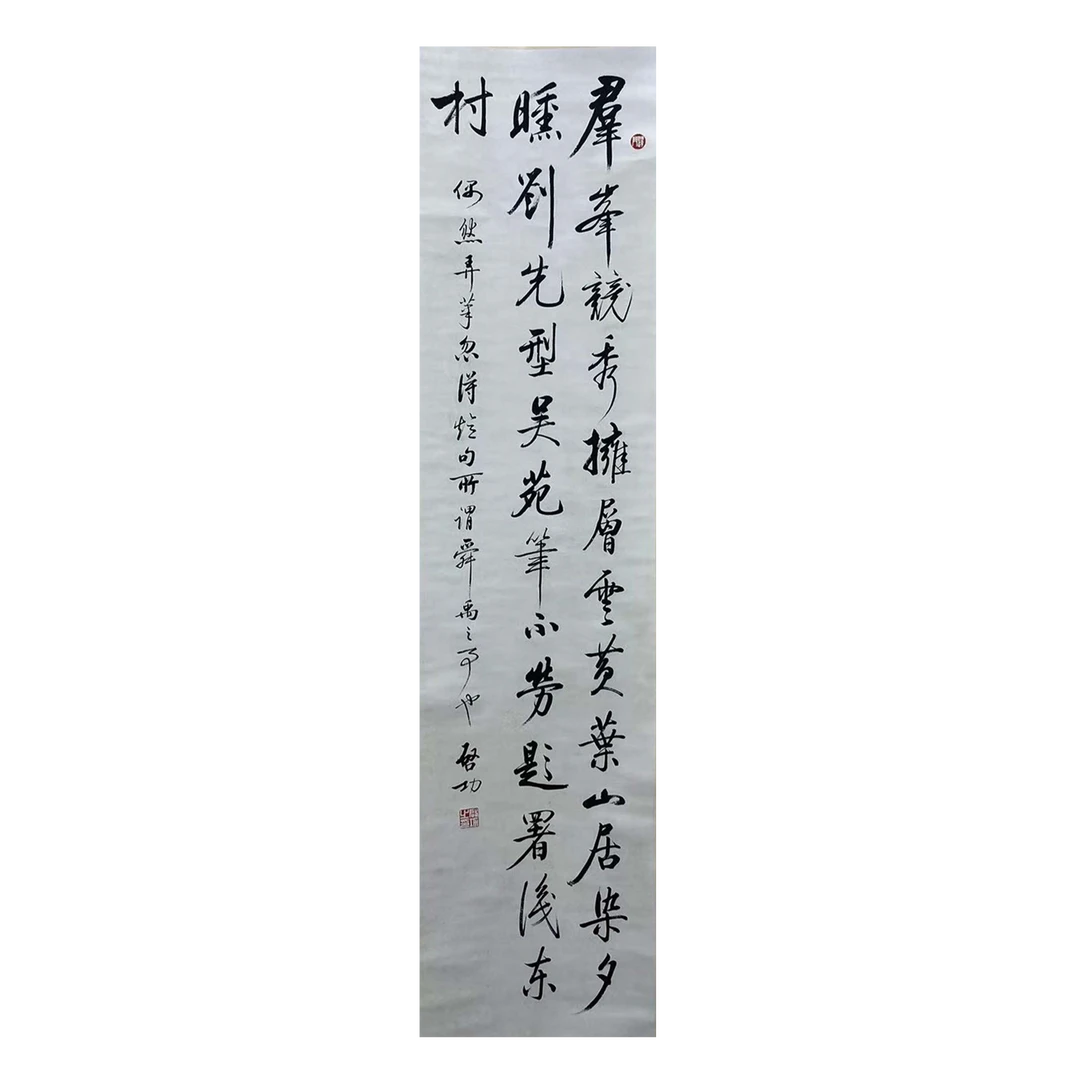 羣峯競秀擁層雲黄葉山居染夕
曛劉先型吴苑筆不勞題署淺东
村
偶然弄筆忽得短句所謂舜禹之事也
啓功